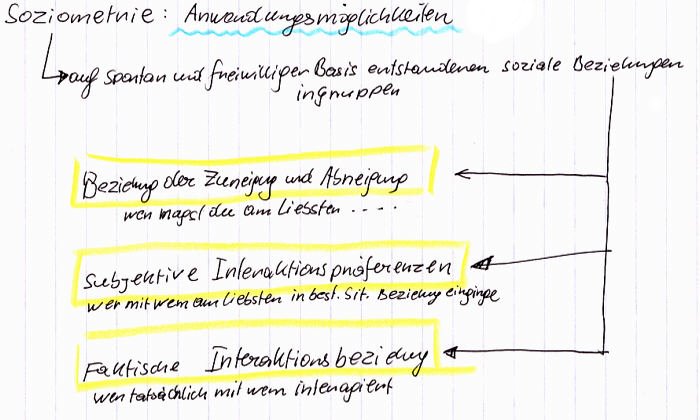 Soziometrie: Anwendungsmöglichkeiten
auf spontan und freiwilliger Basis entstandenen soziale Beziehungen
ingruppen
Beziehung der Zuneigung und Abneigung
wen magst du am Liebsten ....
Subjektive Interaktionspräferenzen
wer mit wem am liebsten in best. Sit. Beziehung einginge
Faktische Interaktionsbeziehung
wer tatsächlich mit wem interagiert